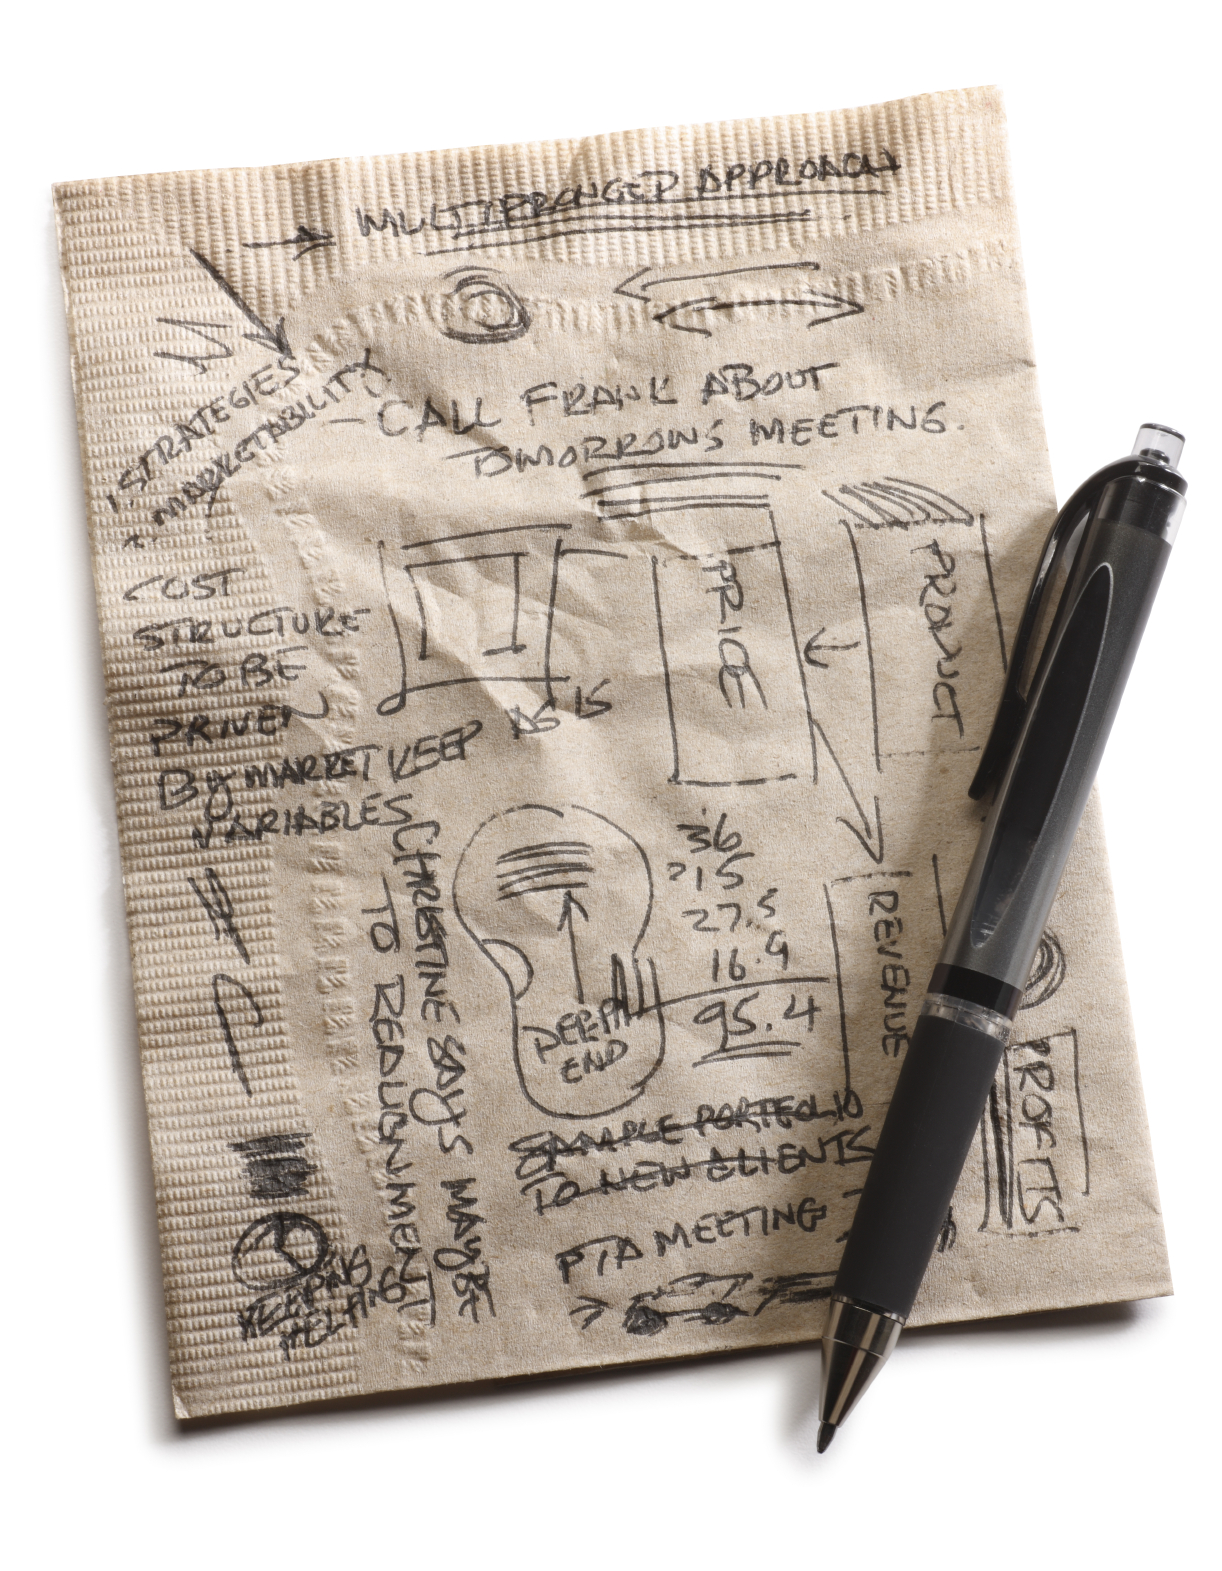 MULTIPRONGED APPROACH
STRATEGIES
MARKETABILITY
- CALL FRANK ABOUT
TOMORROWS MEETING.
COST
STRUCTURE
TO BE
DRIVEN
BY MARKET
VARIABLES
KEEP AS IS
PRICE
PRODUCT
36
15
27.5
16.9
95.4
REVENUE
PROFITS
CHRISTINE SAYS MAYBE
TO REALIGNMENT
DEEP
END
SAMPLE PORTFOLIO
TO NEW CLIENTS
PTA MEETING
KEEPING